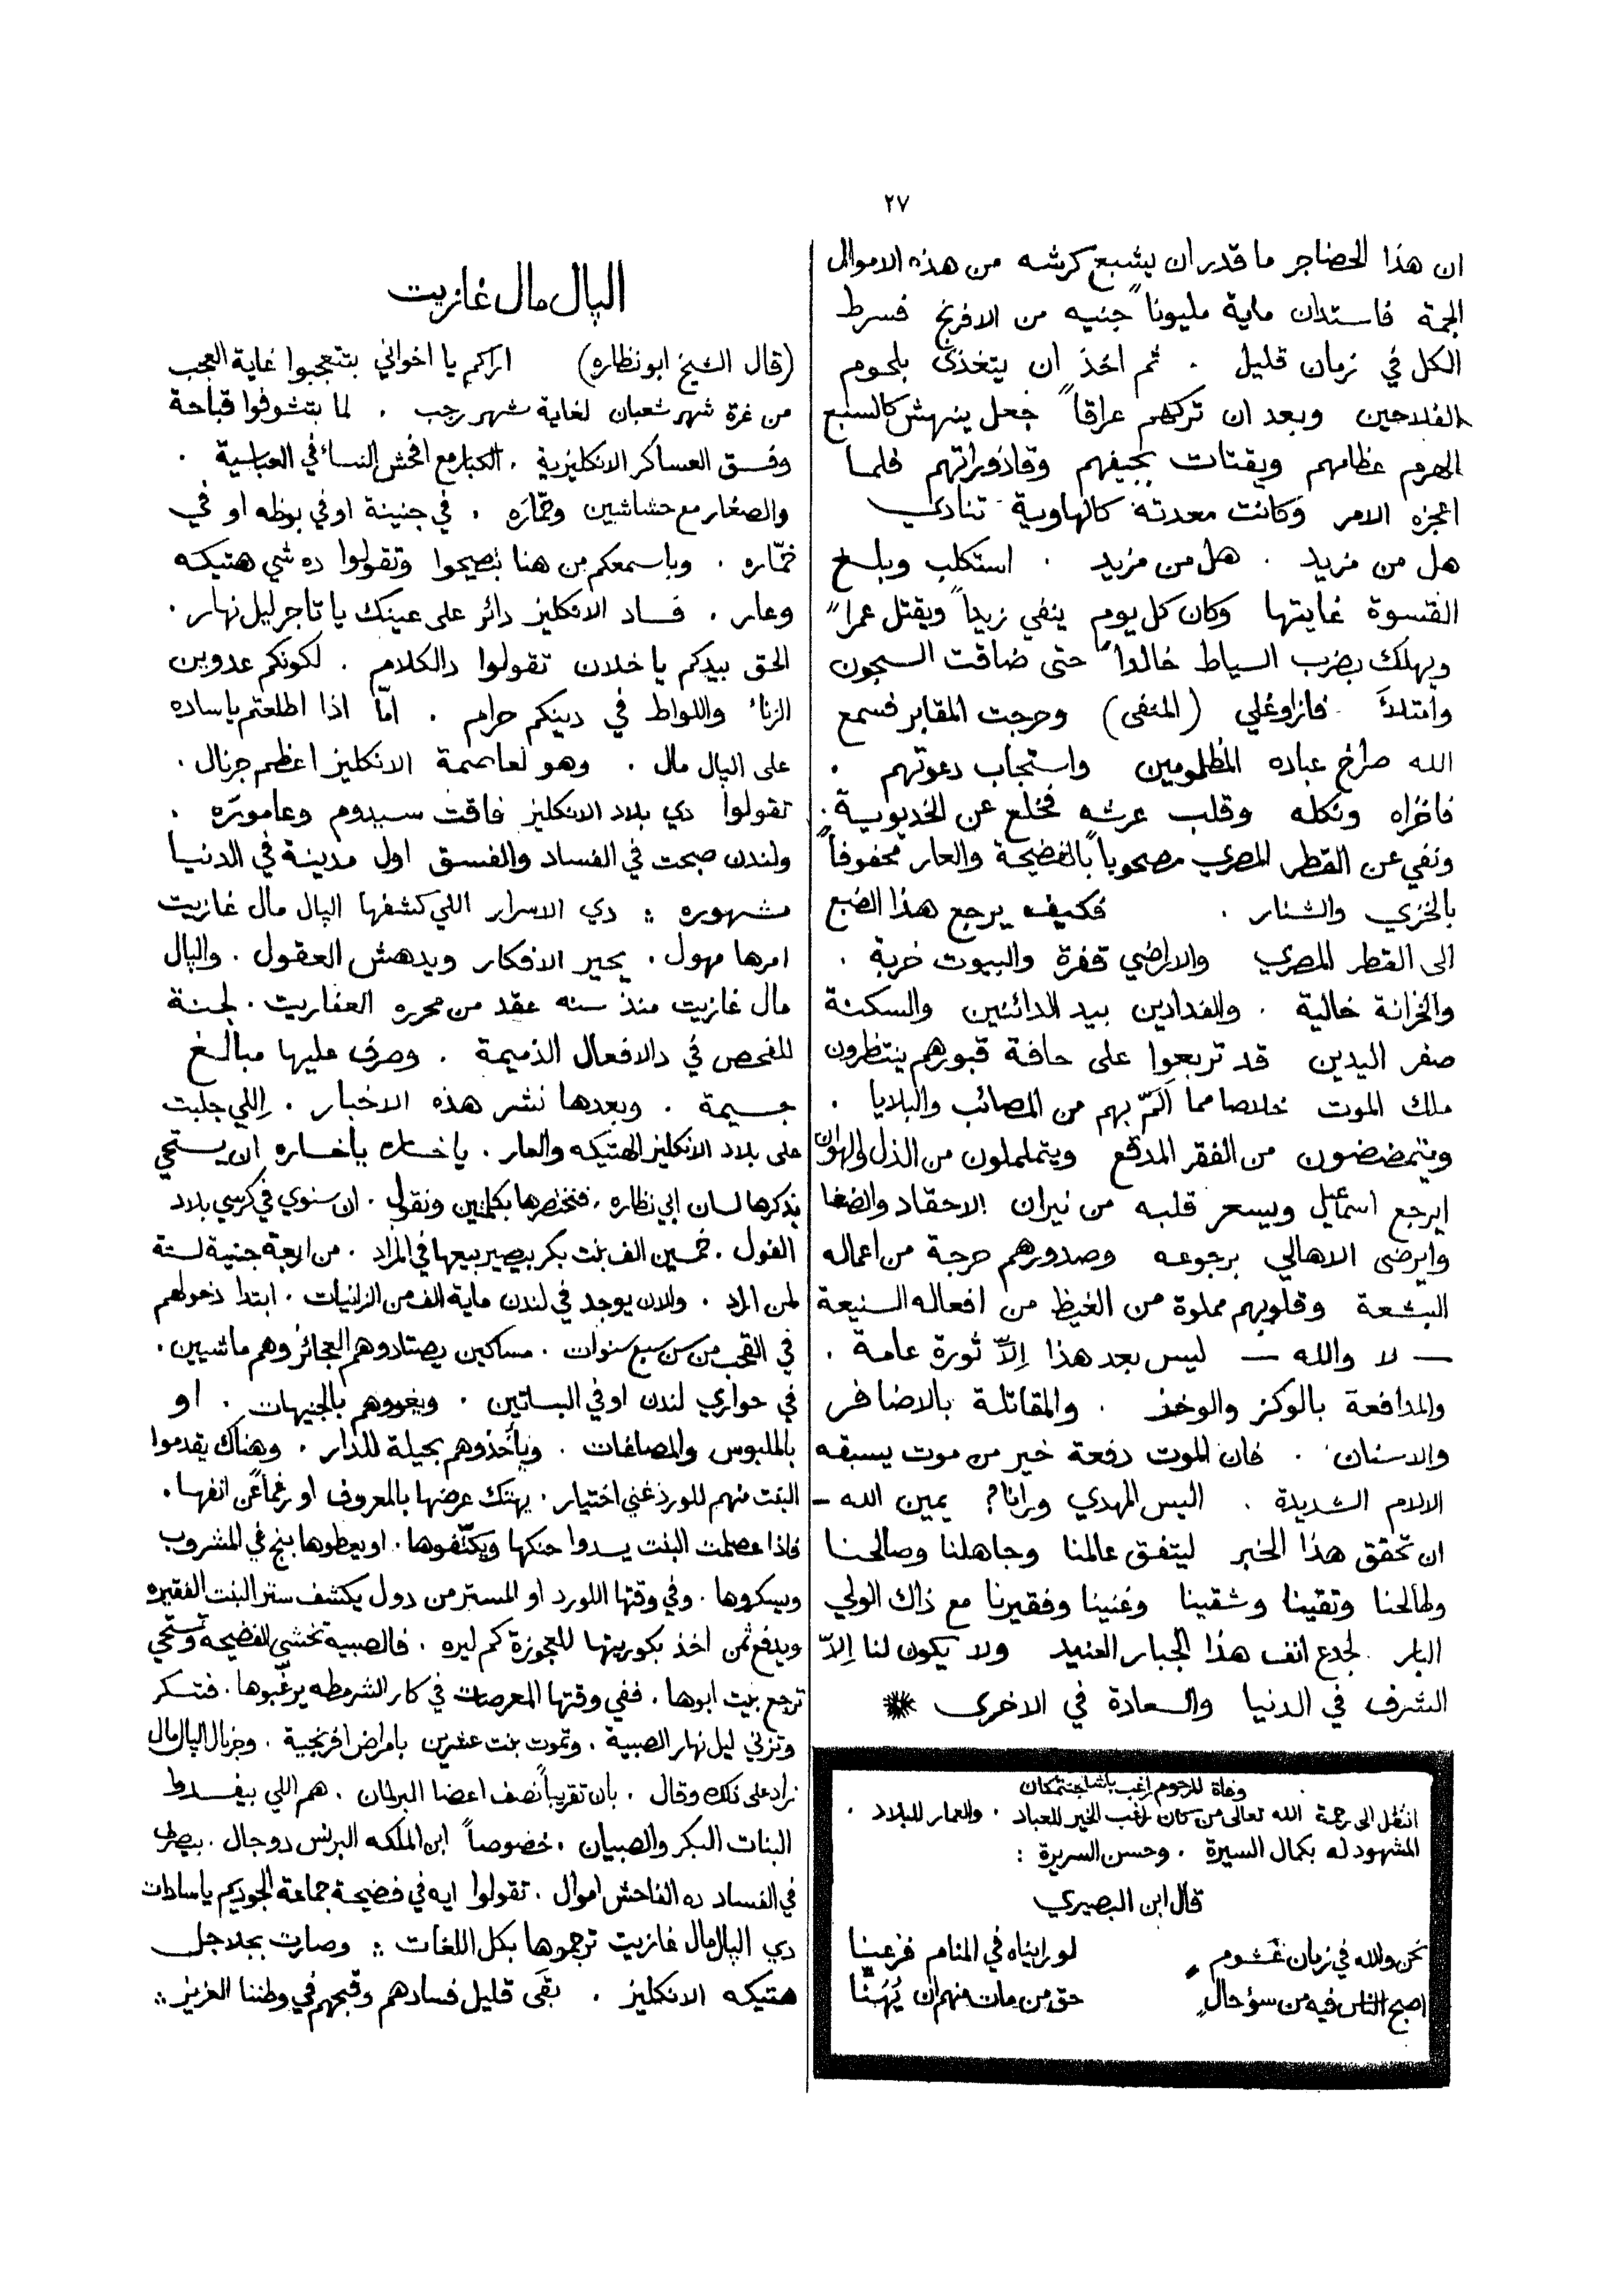 ٢٧
ان هذا الحضاجر ما قدر ان يشبع كرشه من هذه الاموال
الجمة فاستدان ماية مليوناً جنيه من الافرنج فسرط
الكل في زمان قليل . ثم اخذ ان يتغذى بلحوم
الفلاحين وبعد ان تركهم عراقاً جعل ينهش كالسبع
الهرم عظامهم ويقتات بجيفهم وقاذوراتهم فلما
اعجزه الامر وكانت معدته كالهاوية تنادي
هل من مزيد . هل من مزيد . استكلب وبلغ
القسوة غايتها وكان كل يوم ينفي زيداً ويقتل عمراً
ويهلك بضرب السياط خالداً حتى ضاقت السجون
وامتلأ فازاوغلي (المنفى) وحرجت المقابر فسمع
الله صراخ عباده المظلومين واستجاب دعوتهم .
فاخزاه ونكله وقلب عرشه فخلع عن الخديوية .
ونفي عن القطر المصري مصحوباً بالفضيحة والعار محفوفاً
بالخزي والشنار . فكيف يرجع هذا الضبع
الى القطر المصري والاراضي قفرة والبيوت خربة .
والخزانة خالية . والفدادين بيد الدائنين والسكنة
صفر اليدين قد تربعوا على حافة قبورهم ينتظرون
ملك الموت خلاصا مما اَلمّ بهم من المصائب والبلايا .
ويتمضضون من الفقر المدقع ويتململون من الذل والهوان
ايرجع اسماعيل ويسعر قلبه من نيران الاحقاد والضغا
وايرضى الاهالي برجوعه وصدورهم حرجة من اعماله
البشعة وقلوبهم مملوة من الغيظ من افعاله الشنيعة
— لا والله — ليس بعد هذا اِلاّ ثورة عامة .
والمدافعة بالوكز والوخز . والمقاتلة بالاضافر
والاسنان . فان الموت دفعة خير من موت يسبقه
الالام الشديدة . اليس المهدي ورانا؟ يمين الله —
ان تحقق هذا الخبر ليتفق عالمنا وجاهلنا وصالحنا
وطالحنا وتقينا وشقينا وغنينا وفقيرنا مع ذاك الولي
البار لجدع انف هذا الجبار العنيد ولا يكون لنا اِلاّ
الشرف في الدنيا والسعادة في الاخرى *
وفاة المرحوم راغب باشا جنتمكان
انتقل الى رحمة الله تعالى من كان راغب الخير للعباد . والعمار للبلاد .
المشهود له بكمال السيرة . وحسن السريرة :
قال ابن البصيري
نحن والله في زمان غشوم لو رايناه في المنام فزعنا
اصبح الناس فيه من سوٴ حالٍ حق من مات منهم ان يُهنّا
الپال مال غازيت
(قال الشيخ ابو نظاره) اراكم يا اخواني بتتعجبوا غاية العجب
من غرة شهر شعبان لغاية شهر رجب . لما بتشوفوا قباحة
وفسق العساكر الانكليزية . الكبار مع افحش النساء في العباسية .
والصغار مع حشاشين وحمّاره . في جنينة او في بوظه او في
خمّاره . وباسمعكم من هنا بتصيحوا وتقولوا ده شي هتيكه
وعار . فساد الانكليز دائر على عينك يا تاجر ليل نهار .
الحق بيدكم يا خلان تقولوا دالكلام . لكونكم عدوين
الزناء واللواط في دينكم حرام . امّا اذا اطلعتم ياساده
على الپال مال . وهو لعاصمة الانكليز اعظم جرنال .
تقولوا دي بلاد الانكليز فاقت سيدوم وعاموره .
ولندن صبحت في الفساد والفسق اول مدينة في الدنيا
مشهوره :: دي الاسرار اللي كشفها الپال مال غازيت
امرها مهول . يحير الافكار ويدهش العقول . والپال
مال غازيت منذ سنه عقد من محرره العفاريت . لجنة
للفحص في دالافعال الذميمة . وصرف عليها مبالغ
جسيمة . وبعدها نشر هذه الاخبار . اللي جلبت
على بلاد الانكليز الهتيكه والعار . يا خساره ياخساره ان يستحي
يذكرها لسان ابي نظاره . فنختصرها بكلمتين ونقول . ان سنوي في كرسي بلاد
الفول . خمسين الف بنت بكر بيصير بيعها في المزاد . من اربعة جنية لستة
لمن اراد . والان يوجد في لندن ماية الف من الزانيات . ابتدا دخولهم
في القحب من سن سبع سنوات . مساكين يصتادوهم العجائز وهم ماشيين .
في حواري لندن او في البساتين . ويغووهم بالجنيهات . او
بالملبوس والمصاغات . ويأخذوهم بحيلة للدار . وهناك يقدموا
البنت منهم للورد غني اختيار . يهتك عرضها بالمعروف او رغماً عن انفها .
فاذا عصلت البنت يسدوا حنكها ويكتّفوها . او يعطوها بنج في المشروب
ويسكروها . وفي وقتها اللورد او المستر من دول يكشف ستر البنت الفقيره
ويدفع ثمن اخذ بكوريتها للعجوزة كم ليره . فالصبيه تخشى الفضيحه وتستحي
ترجع بيت ابوها . ففي وقتها المعرصات في كار الشرمطه يرغّبوها . فتسكر
وتزني ليل نهار الصبية . وتموت بنت عشرين بامراض افرنجية . وجرنال الپال مال
زاد على ذلك وقال . بان تقريباً نصف اعضا البرلمان . هم اللي بيفسدوا
البنات البكر والصبيان . خصوصاً ابن الملكه البرنس دوجال . بيصرف
في الفساد ده الفاحش اموال . تقولوا ايه في فضيحة جماعة الجوديم ياسادات
دي الپال مال غازيت ترجموها بكل اللغات :: وصارت بجلاجل
هتيكه الانكليز . بقى قليل فسادهم وقبحهم في وطننا العزيز ::